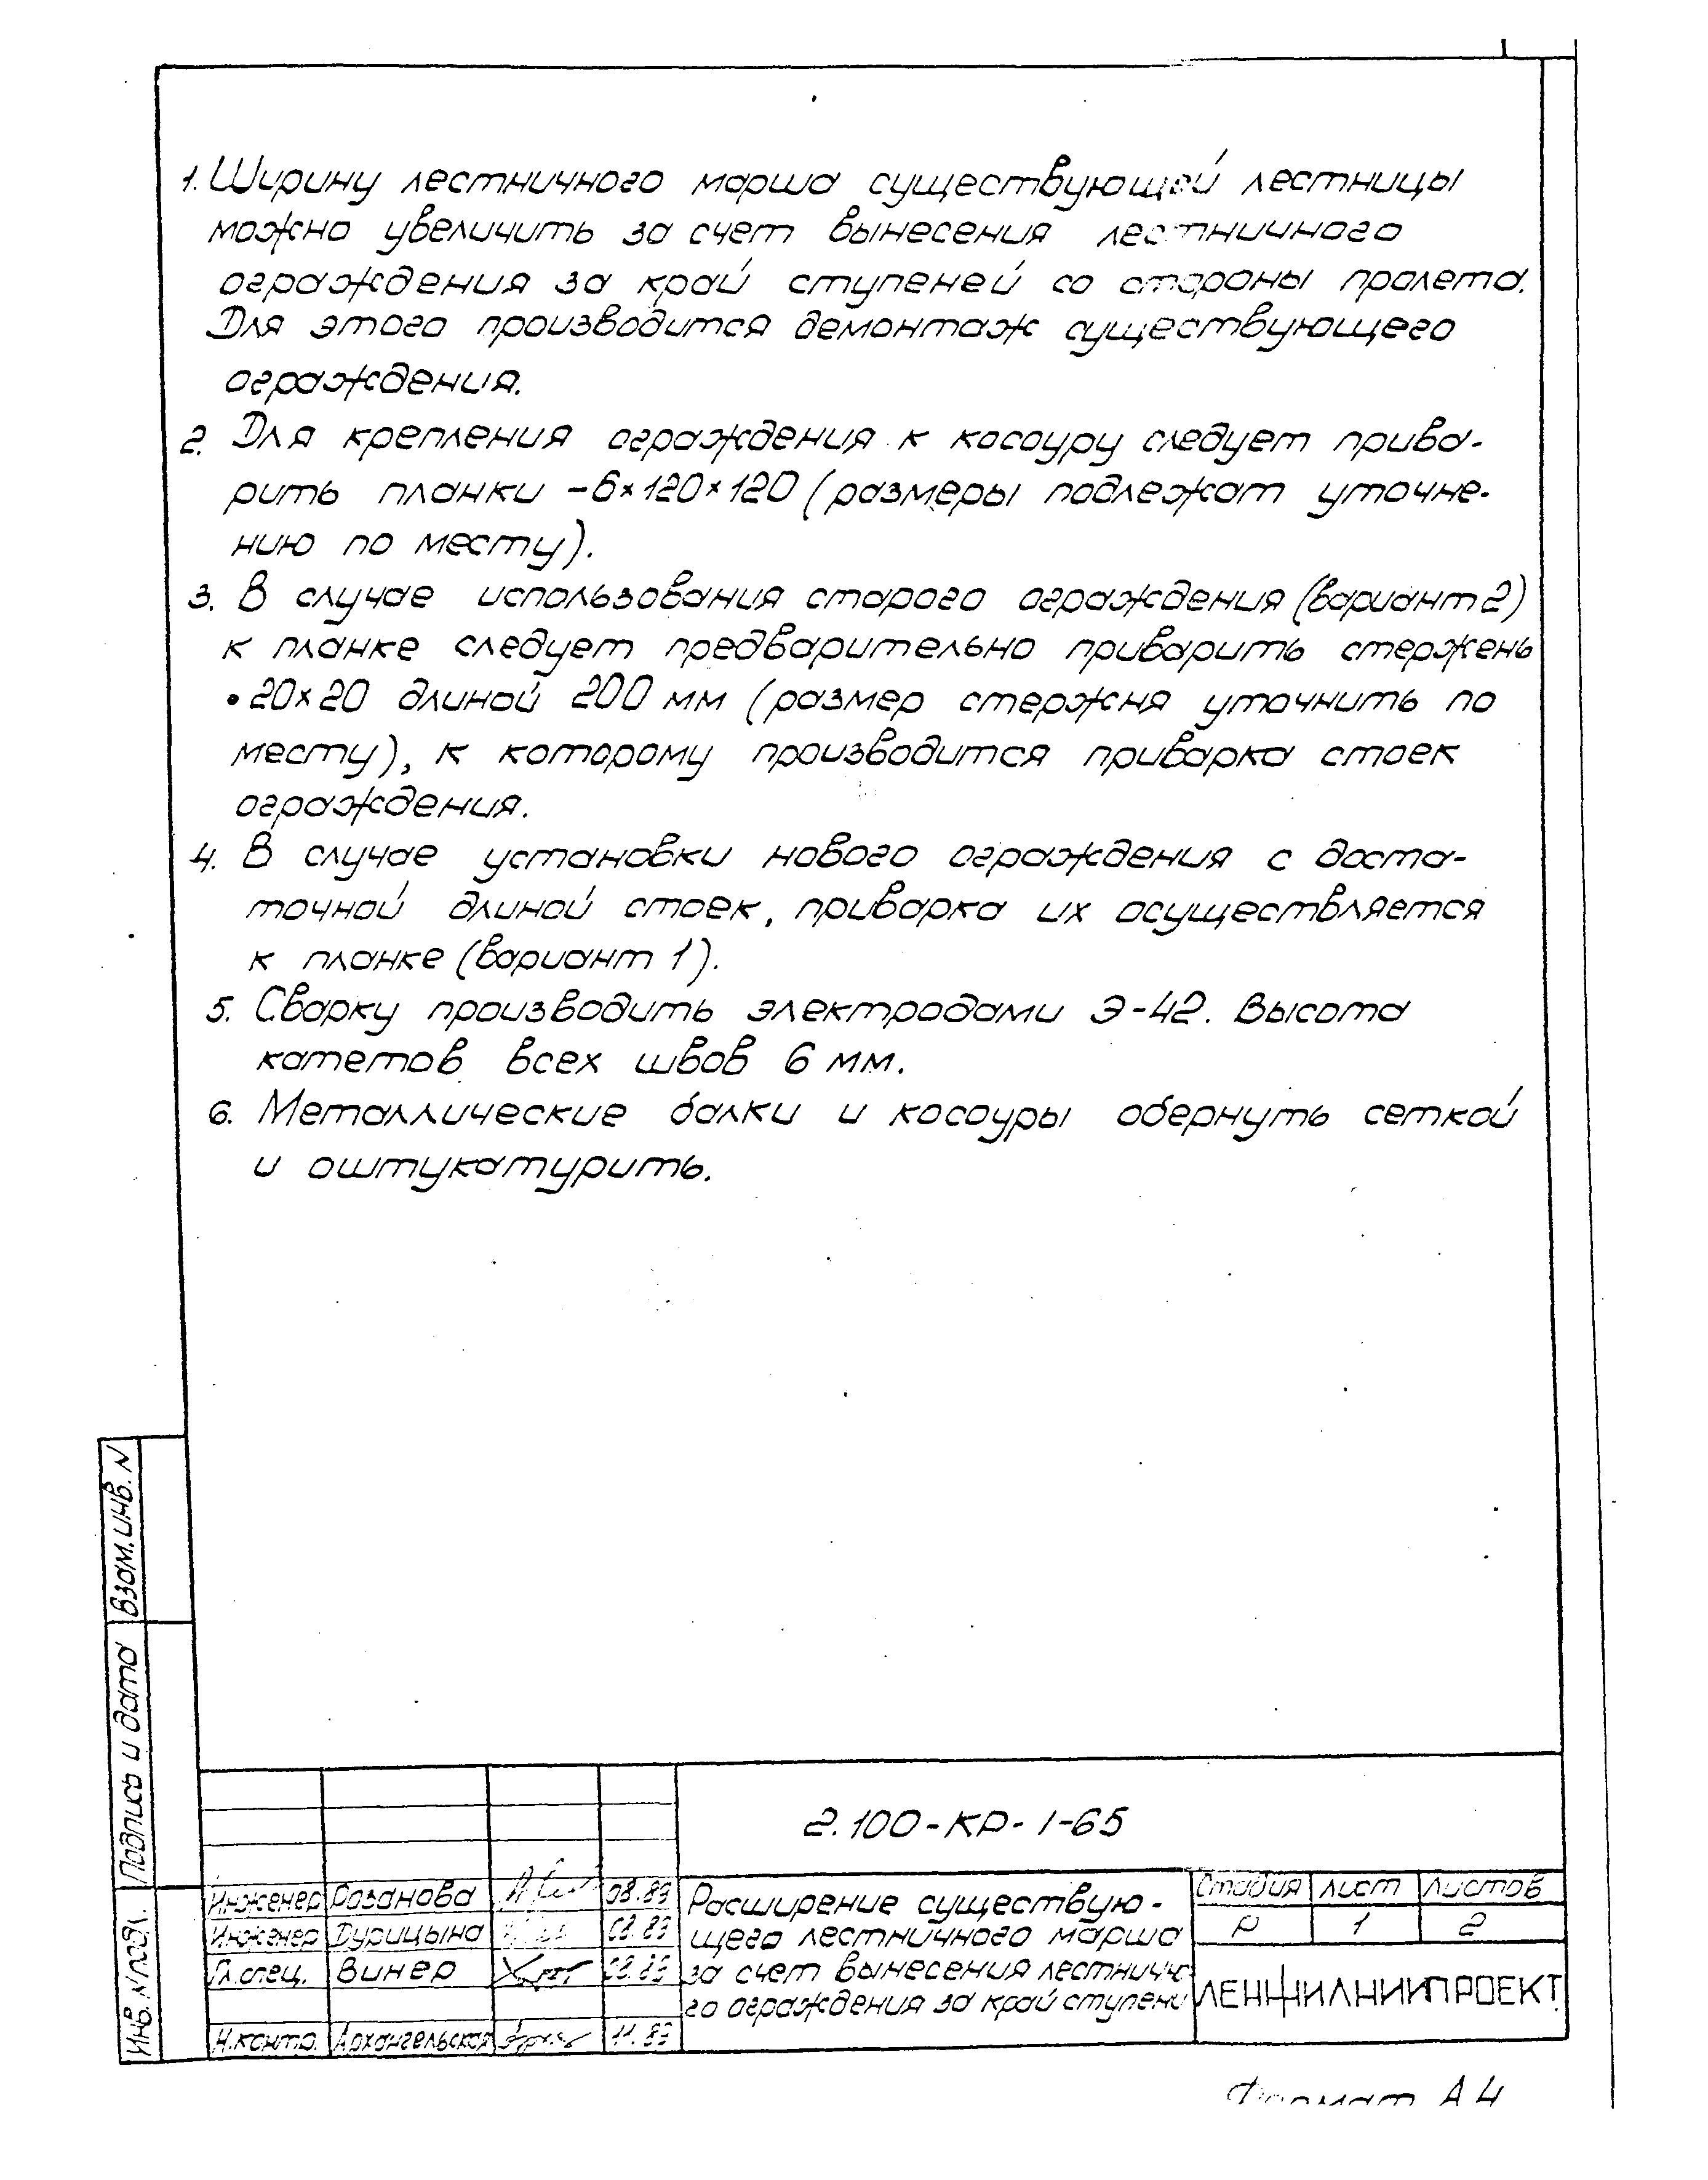 1. Ширину лестничного марша существующей лестницы
можно увеличить за счет вынесения лестничного
ограждения за край ступеней со стороны пролета.
Для этого производится демонтаж существующего
ограждения.
2. Для крепления ограждения к косоуру следует прива-
рить планки -6×120×120 (размеры подлежат уточне-
нию по месту).
3. В случае использования старого ограждения (вариант 2)
к планке следует предварительно приварить стержень
• 20×20 длиной 200 мм (размер стержня уточнить по
месту), к которому производится приварка стоек
ограждения.
4. В случае установки нового ограждения с доста-
точной длиной стоек, приварка их осуществляется
к планке (вариант 1).
5. Сварку производить электродами Э-42. Высота
катетов всех швов 6 мм.
6. Металлические балки и косоуры обернуть сеткой
и оштукатурить.
Взам. инв. N
Подпись и дата
Инв. N подл.
2.100-КР-1-65
Инженер Розанова 08.89
Инженер Дурицына 08.89
Гл. спец. Винер 08.89
Н. контр. Архангельская 11.89
Расширение существую-
щего лестничного марша
за счет вынесения лестнично
го ограждения за край ступени
Стадия лист листов
Р 1 2
ЛЕНЖИЛНИИПРОЕКТ
Формат А4